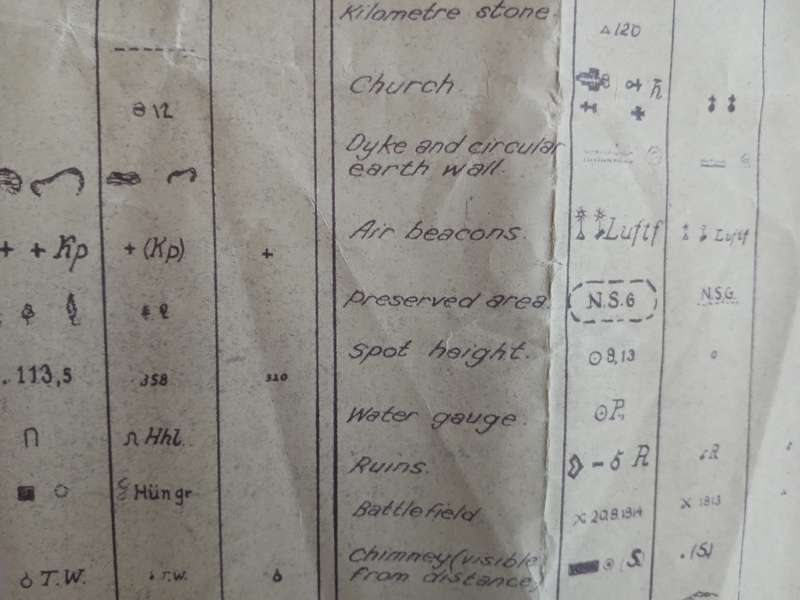 Kilometre stone.
△120
Church.
ħ
⊖12
Dyke and circular
earth wall.
+ + Kp
+ (Kp)
+
Air beacons.
Luftf
Luftf
Preserved area.
N.S.G
N.S.G.
. 113,5
358
310
Spot height.
⊙9,13
Water gauge.
⊙P.
Hhl.
Ruins.
R
R
Hüngr
Battlefield
20.8.1914
1813
T.W.
T.W.
Chimney (visible
from distance)
(S)
.(S)